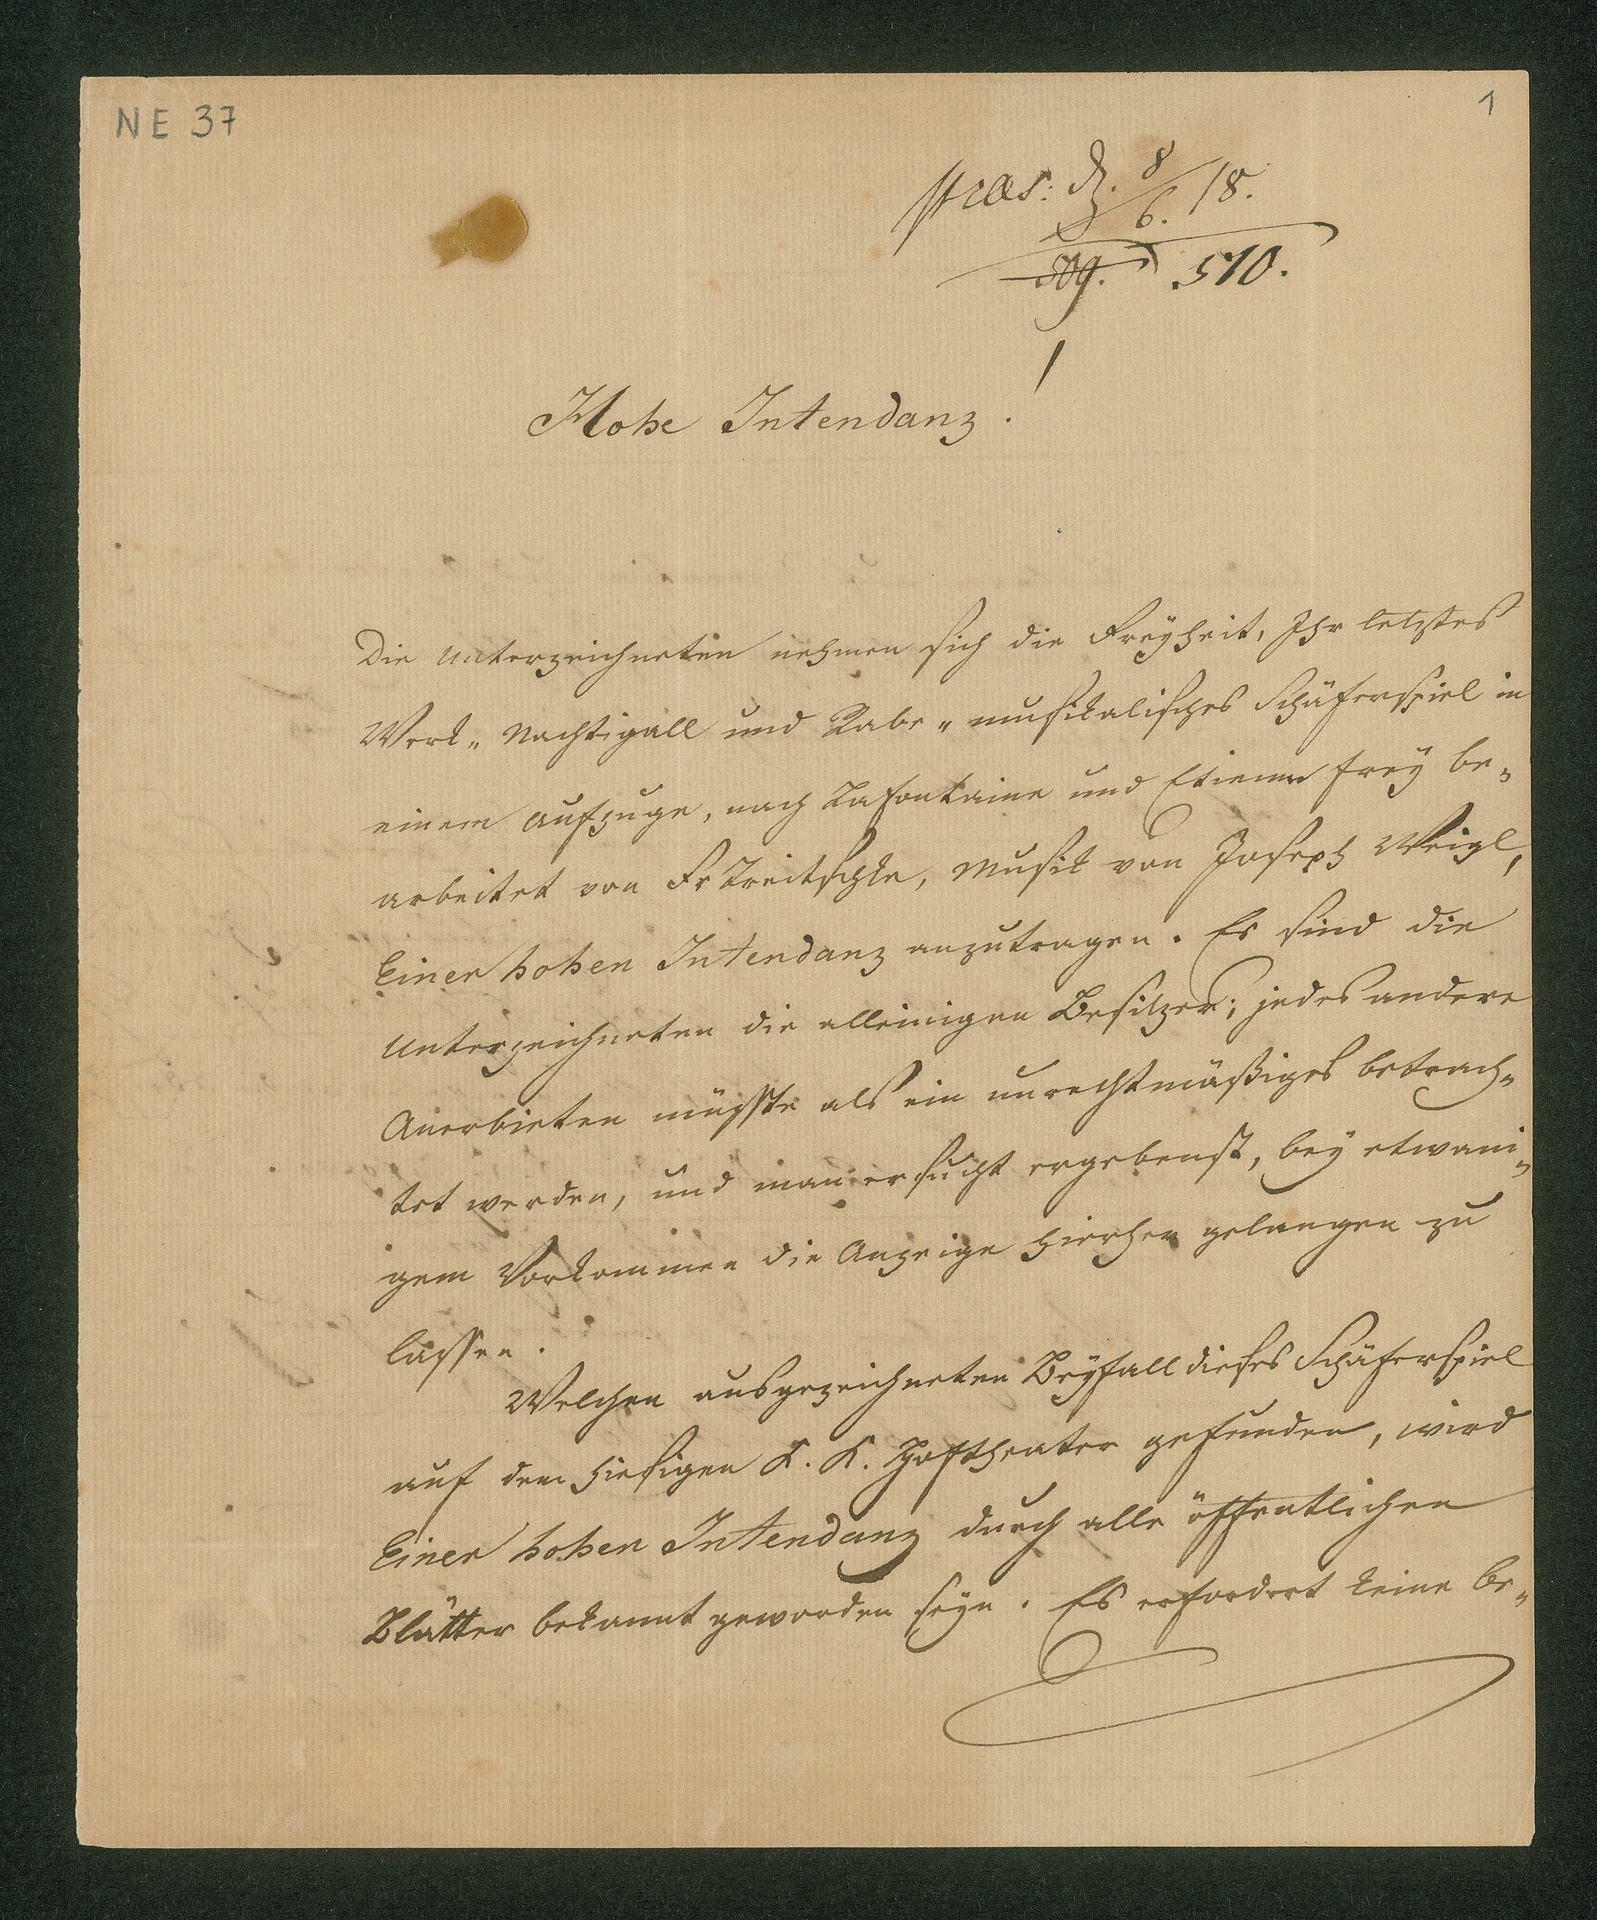 NE 37
1
præs: d. 8/6. 18.
509. 510.
Hohe Intendanz!
Die Unterzeichneten nehmen sich die Freyheit, Ihr letztes
Werk „Nachtigall und Rabe„ musikalisches Schäferspiel in
einem Aufzuge, nach Lafontaine und Etienne frey be-
arbeitet von Fr Treitschke, Musik von Joseph Weigl,
Einer hohen Intendanz anzutragen. Es sind die
Unterzeichneten die alleinigen Besitzer; jedes andere
Anerbieten müsste als ein unrechtmäßiges betrach-
tet werden, und man ersucht ergebenst, bey etwani-
gem Vorkommen die Anzeige hierher gelangen zu
lassen.
Welchen ausgezeichneten Beyfall dieses Schäferspiel
auf dem hiesigen K. K. Hoftheater gefunden, wird
Einer hohen Intendanz durch alle öffentlichen
Blätter bekannt geworden seyn. Es erfordert keine be-